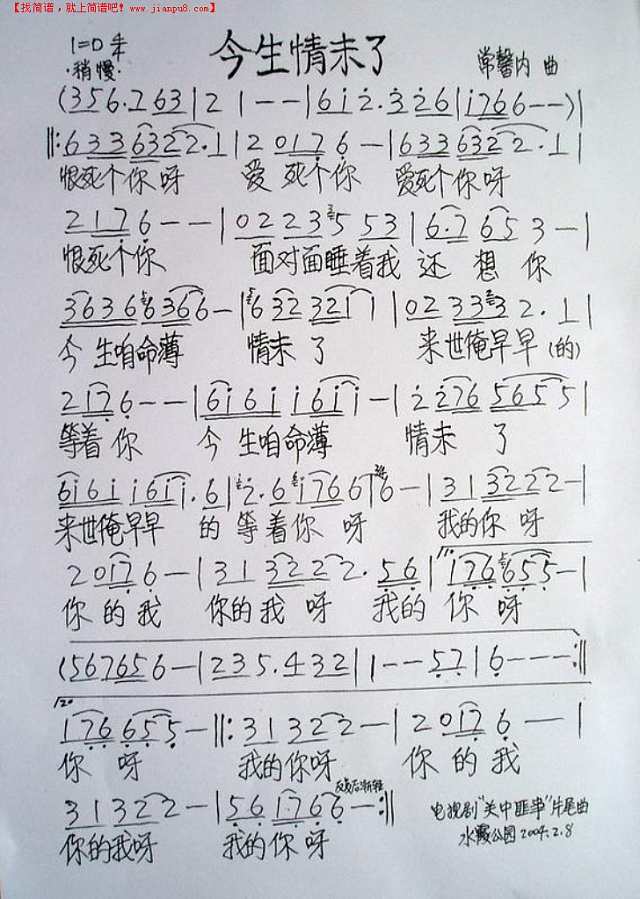 【找简谱,就上简谱吧!www.jianpu8.com】
今生情未了
1=D 4/4
·稍慢·
常馨内 曲
(356.763|2 |1--|6i2.326|i766--)|
||:633632 2.1|20176-|633632 2.1|
恨死个你呀 爱 死个你 爱死个你呀
2176--|02235 53|6.7653-|
恨死个你 面对面睡着我 还 想 你
363663 66-|632321 1|022333 2.1|
今 生咱命薄 情未 了 来世俺早早(的)
2176--|6i6i i6ii-|2276 5655|
等着 你 今 生咱命薄 情未 了
6i6i i6ii.6|2.6i7666-|313222-|
来世俺早早 的 等着你 呀 我的你 呀
20176-|313222.56|176655-|
你 的 我 你的 我 呀 我的 你 呀
(567656-|235.432|1--57|6---:||
176655-||:31322-|20176--|
你 呀 我的你呀 你 的 我
31322-|561766-:||
你的我呀 我的你 呀
反复后渐轻
电视剧"关中匪事"片尾曲
水霞公园2004.2.8